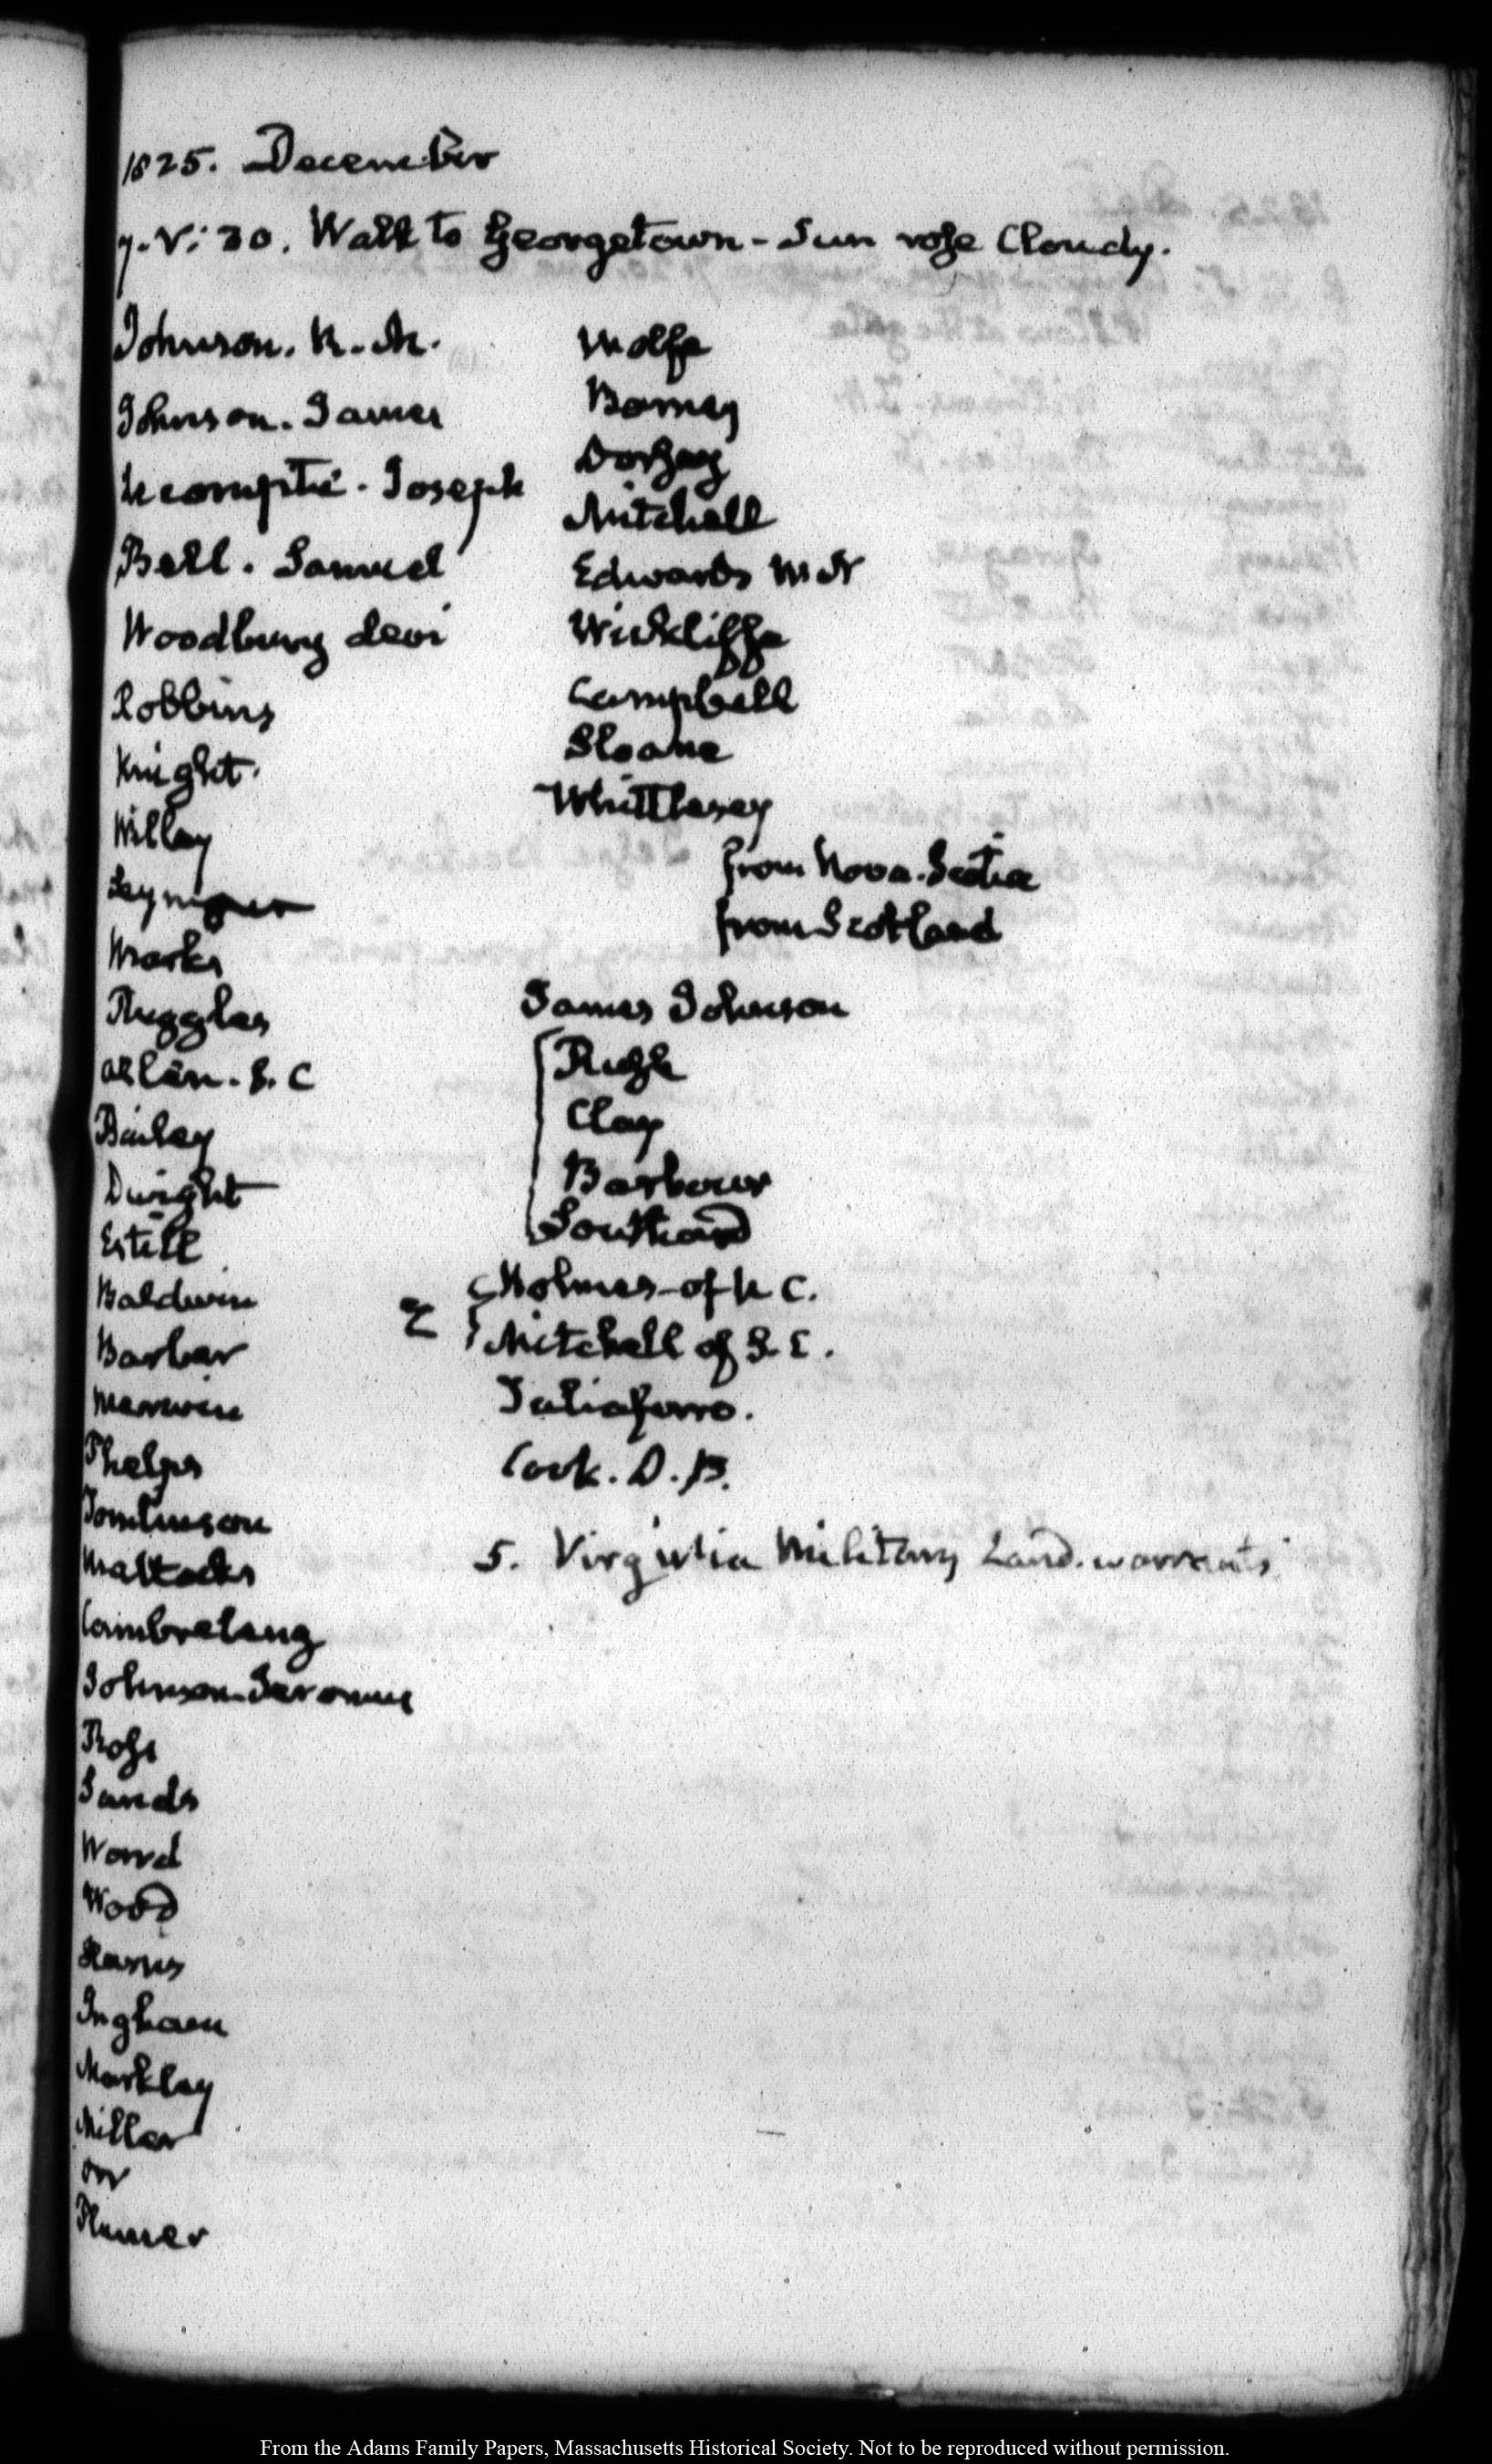 1825. December
7. V: 30. Walk to Georgetown - Sun rose Cloudy.
Johnson. R. M.
Johnson. James
Lecompte. Joseph
Bell. Samuel
Woodbury Levi
Robbins
Knight.
Willey
Seymour
Marks
Ruggles
Allen. S. C
Bailey
Dwight
Estill
Baldwin
Barber
Merwin
Phelps
Tomlinson
Mattocks
Cambreleng
Johnson. Jeromus
Ross
Sands
Ward
Wood
Harris
Ingham
Markley
Miller
Orr
Plumer
Wolfe
Barney
Dorsey
Mitchell
Edwards W N
Wickliffe
Campbell
Sloane
Whittlesey
from Nova-Scotia
from Scotland
James Johnson
Rush
Clay
Barbour
Southard
Holmes - of N C.
Mitchell of S. C.
Taliaferro.
Cook. D. P.
5. Virginia Military Land. warrants
From the Adams Family Papers, Massachusetts Historical Society. Not to be reproduced without permission.